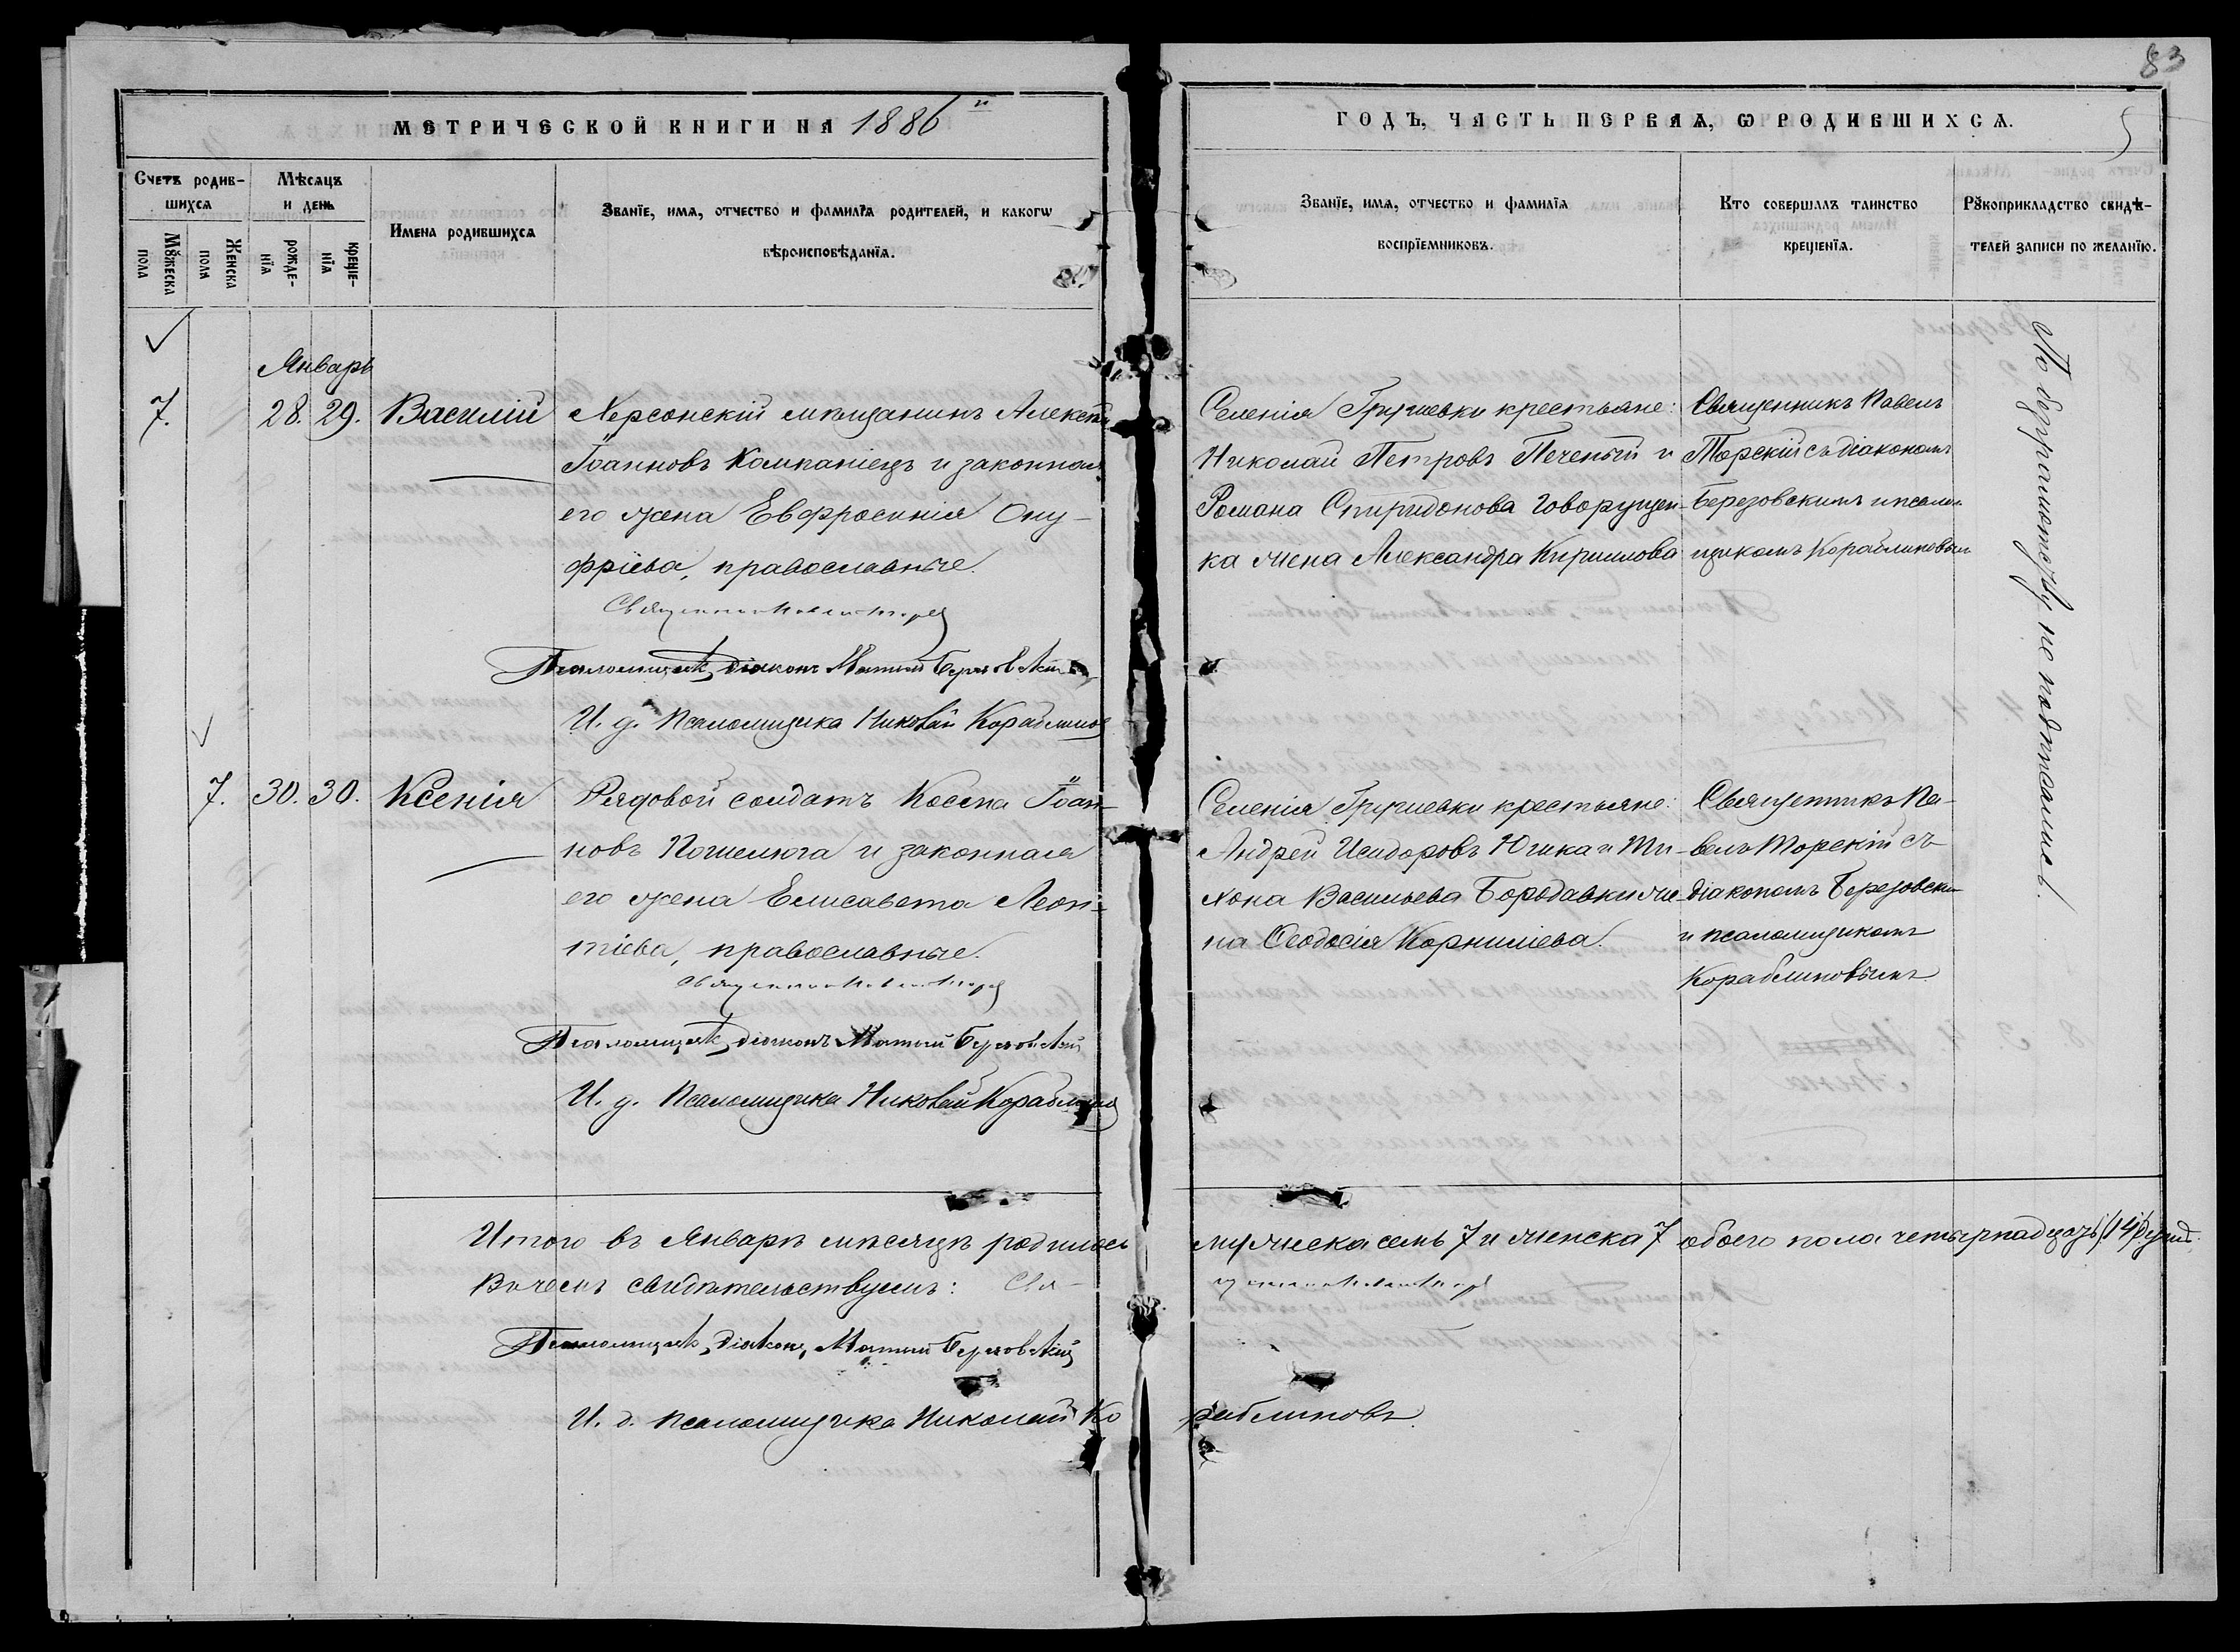 83
5
МЕТРИЧЕСКОЙ КНИГИ НА 1886 й
ГОДЪ, ЧАСТЬ ПЕРВАЯ, Ѡ РОДИВШИХСѦ.
Счетъ родив-
шихся
Мѹжеска
пола
Женска
пола
Мѣсяцъ
и день
рожде-
нїя
креще-
нїя
Имена родившихся
Званїе, имя, отчество и фамилїя родителей, и какогѡ
вѣроисповѣданїя.
Званїе, имя, отчество и фамилїя
воспрїемниковъ.
Кто совершалъ таинство
крещенїя.
Рѹкоприкладство свидѣ-
телей записи по желанїю.
Январь
7.
28. 29.
Василій
Херсонскій мѣщанинъ Алексѣй
Іоанновъ Компаніецъ и законная
его жена Евфросинія Ону-
фріева, православные.
Псаломщикъ діаконъ Березовскій
И. д. Псаломщика Николай Кораблиновъ
Селенія Грушевки крестьяне:
Николай Петровъ Печеный и
Романа Спиридонова Говорущен-
ка жена Александра Кириллова
Священникъ Павелъ
Торскій съ діакономъ
Березовскимъ и псалом-
щикомъ Кораблиновым
По безграмотству не подписались.
7.
30. 30.
Ксенія
Рядовой солдатъ Косма Іоан-
новъ Пошелюга и законная
его жена Елисавета Леон-
тіева, православные.
Псаломщикъ діаконъ Березовскій
И. д. Псаломщика Николай Кораблиновъ
Селенія Грушевки крестьяне:
Андрей Исидоровъ Юшка и Ти-
хона Васильева Бородавки же-
на Ѳеодосія Корниліева.
Священникъ Па-
велъ Торскій съ
діакономъ Березовски
и псаломщикомъ
Кораблиновымъ
Итого въ Январѣ мѣсяцѣ родилось
мужеска семь 7 и женска 7 обоего пола четырнадцать (14) душъ.
Въ чемъ свидѣтельствуемъ: Свя-
Псаломщикъ, діаконъ, Березовскій
И. д. Псаломщика Николай Ко
раблиновъ